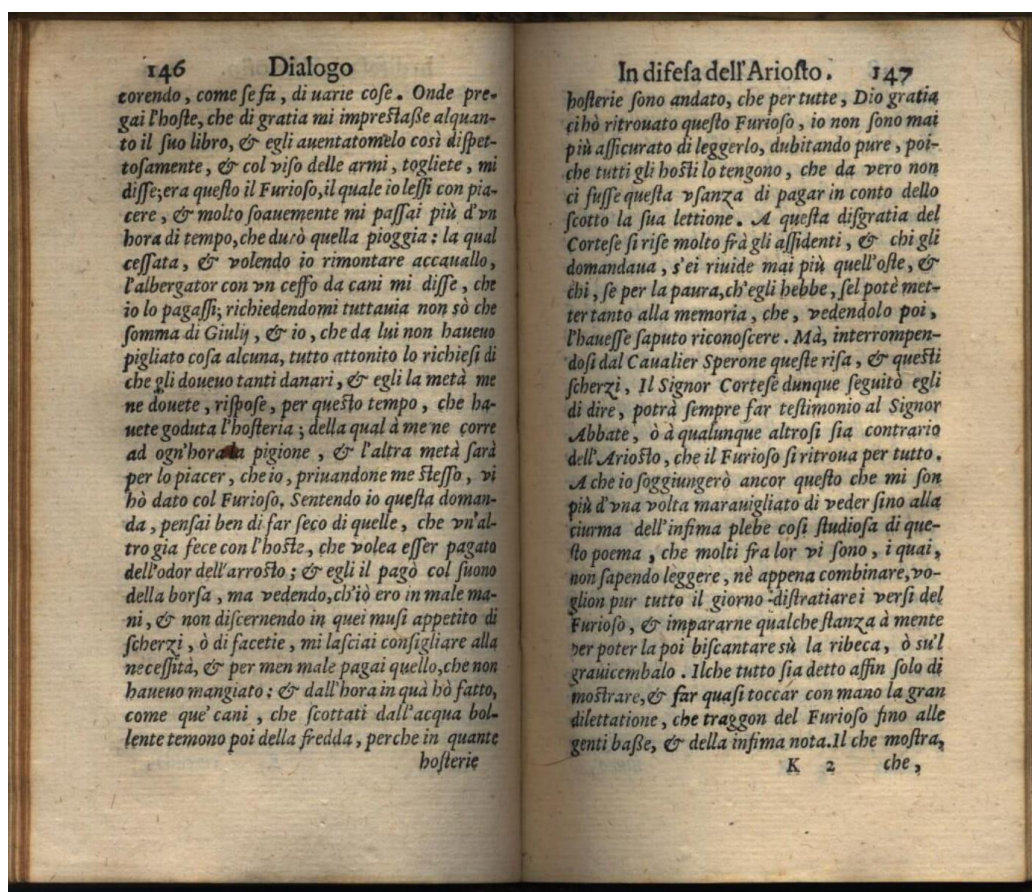 146 Dialogo
corendo, come ſe fa, di uarie coſe. Onde pre-
gai l'hoſte, che di gratia mi impreſtaſſe alquan-
to il ſuo libro, & egli auentatomelo così diſpet-
toſamente, & col viſo delle armi, togliete, mi
diſſe; era queſto il Furioſo, il quale io leſſi con pia-
cere, & molto ſoauemente mi paſſai più d'vn
hora di tempo, che durò quella pioggia: la qual
ceſſata, & volendo io rimontare accauallo,
l'albergator con vn ceffo da cani mi diſſe, che
io lo pagaſſi; richiedendomi tuttauia non sò che
ſomma di Giulij, & io, che da lui non haueuo
pigliato coſa alcuna, tutto attonito lo richieſi di
che gli doueuo tanti danari, & egli la metà me
ne douete, riſpoſe, per queſto tempo, che ha-
uete goduta l'hoſteria; della qual à me ne corre
ad ogn'hora la pigione, & l'altra metà ſarà
per lo piacer, che io, priuandone me ſteſſo, vi
hò dato col Furioſo. Sentendo io queſta doman-
da, penſai ben di far ſeco di quelle, che vn'al-
tro gia fece con l'hoſte, che volea eſſer pagato
dell'odor dell'arroſto; & egli il pagò col ſuono
della borſa, ma vedendo, ch'iò ero in male ma-
ni, & non diſcernendo in quei muſi appetito di
ſcherzi, ò di facetie, mi laſciai conſigliare alla
neceſſità, & per men male pagai quello, che non
haueuo mangiato: & dall'hora in quà hò fatto,
come que' cani, che ſcottati dall'acqua bol-
lente temono poi della fredda, perche in quante
hoſterie
In difeſa dell'Arioſto. 147
hoſterie ſono andato, che per tutte, Dio gratia
ci hò ritrouato queſto Furioſo, io non ſono mai
più aſſicurato di leggerlo, dubitando pure, poi-
che tutti gli hoſti lo tengono, che da vero non
ci fuſſe queſta vſanza di pagar in conto dello
ſcotto la ſua lettione. A queſta diſgratia del
Corteſe ſi riſe molto frà gli aſſidenti, & chi gli
domandaua, s'ei riuide mai più quell'oſte, &
chi, ſe per la paura, ch'egli hebbe, ſel potè met-
ter tanto alla memoria, che, vedendolo poi,
l'haueſſe ſaputo riconoſcere. Mà, interrompen-
doſi dal Caualier Sperone queſte riſa, & queſti
ſcherzi, Il Signor Corteſe dunque ſeguitò egli
di dire, potrà ſempre far teſtimonio al Signor
Abbate, ò à qualunque altroſi ſia contrario
dell'Arioſto, che il Furioſo ſi ritroua per tutto.
A che io ſoggiungerò ancor queſto che mi ſon
più d'vna volta marauigliato di veder ſino alla
ciurma dell'infima plebe coſi ſtudioſa di que-
ſto poema, che molti fra lor vi ſono, i quai,
non ſapendo leggere, nè appena combinare, vo-
glion pur tutto il giorno diſtratiare i verſi del
Furioſo, & impararne qualche ſtanza à mente
per poter la poi biſcantare sù la ribeca, ò ſu'l
grauicembalo. Ilche tutto ſia detto affin ſolo di
moſtrare, & far quaſi toccar con mano la gran
dilettatione, che traggon del Furioſo fino alle
genti baſſe, & della infima nota. Il che moſtra,
K 2 che,